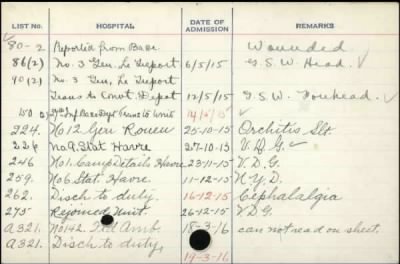 LIST No. HOSPITAL DATE OF ADMISSION REMARKS
80-2 Reported from Base. Wounded.
86(2) No. 3 Gen. Le Treport 6/5/15 G.S.W. Head.
90(2) No. 3 Gen. Le Treport
Trans to Convt. Depot 12/5/15 G.S.W. Forehead.
Inf Base Dept Trans to Unit 14/5/15
224. No 12 Gen Rouen 25-10-15 Orchitis Slt.
226 No 9 Stat Havre 27-10-15 V.D.G.
246 No 1. Camp Details Havre 23-11-15 V.D.G.
259. No 6 Stat Havre 11-12-15 N.Y.D.
262. Disch to duty. 16-12-15 Cephalalgia
275 Rejoined Unit. 26-12-15 V.D.G.
A321. No 142 Fld Amb. 18-3-16 can not read on sheet.
A321. Disch to duty, 19-3-16